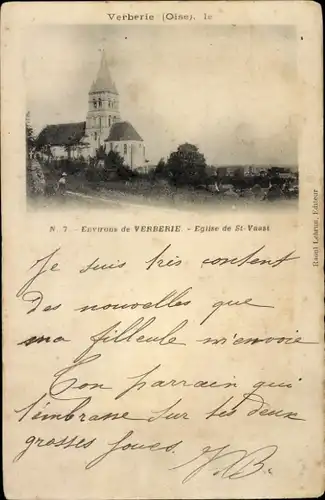 Verberie (Oise), le
N. 7 - Environs de VERBERIE. - Eglise de St-Vaast
Raoul Lebrun, Editeur
Je suis très content
Des nouvelles que
ma filleule m'envoie
Ton parrain qui
t'embrasse sur tes deux
grosses joues.